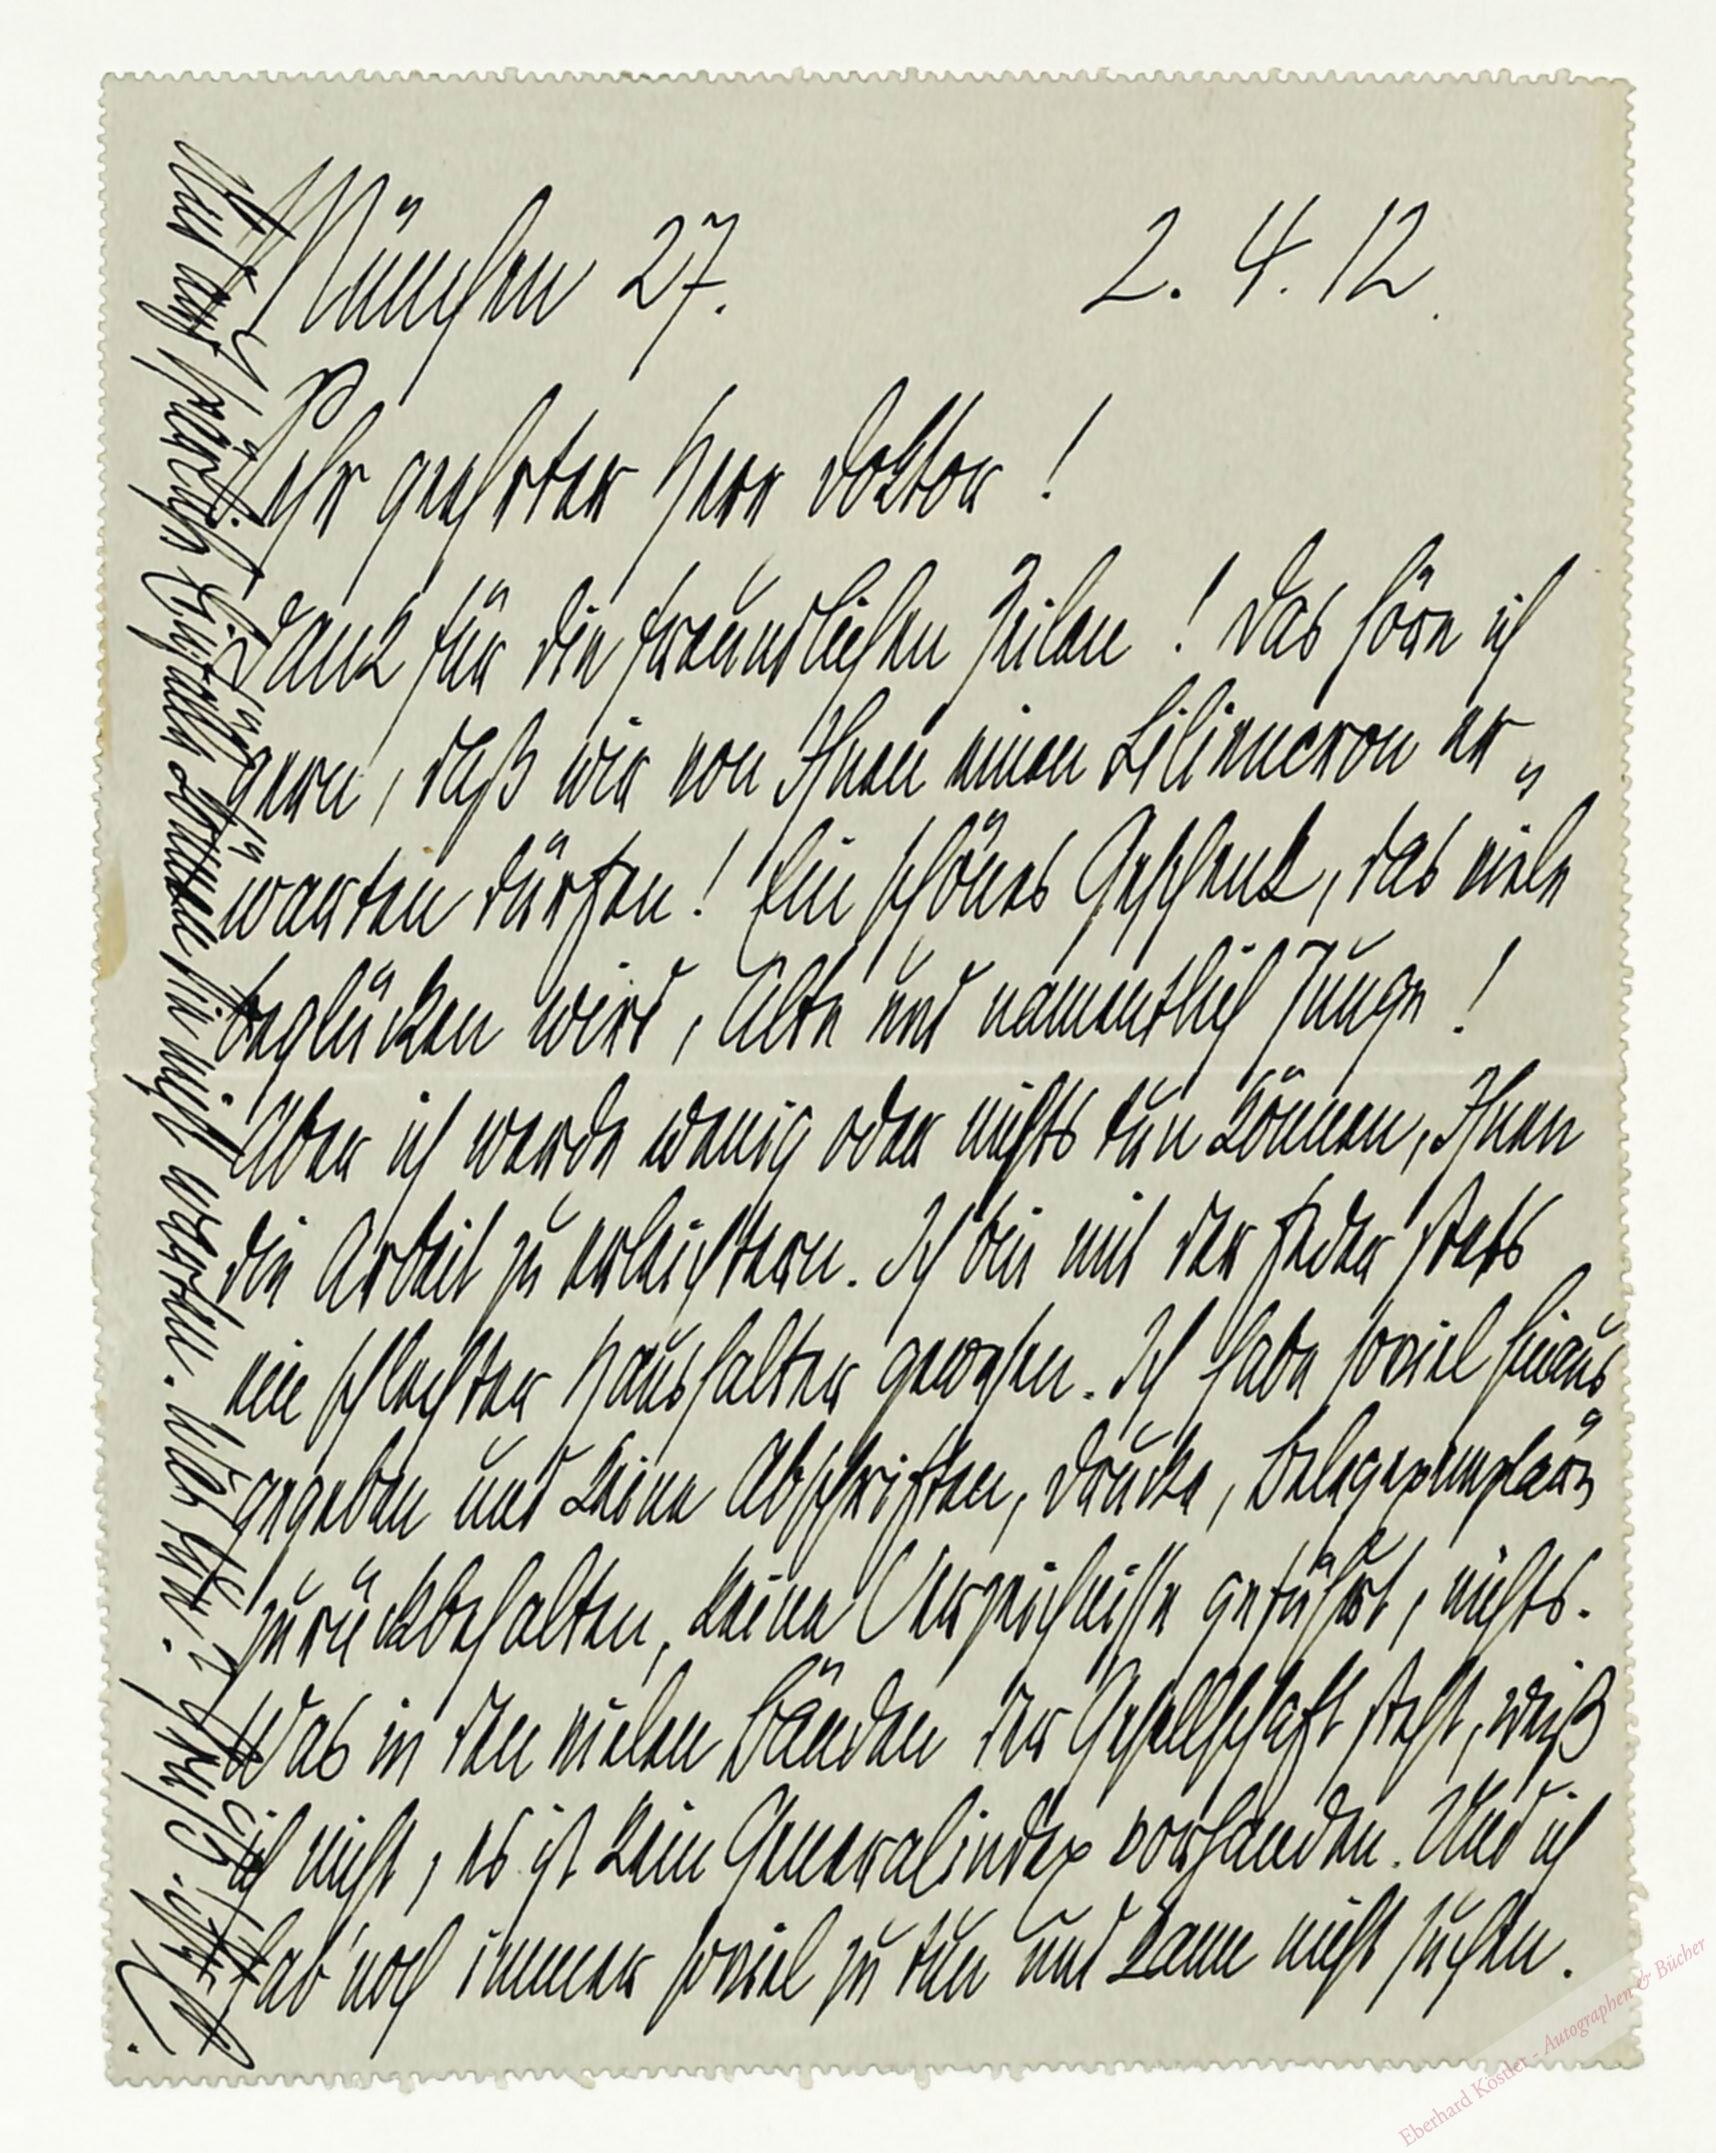 München 27. 2. 4. 12.
Sehr geehrter Herr Doktor!
Dank für die freundlichen Zeilen! Das höre ich
gern, daß wir von Ihnen einen Liliencron er„
warten dürfen! Ein schönes Geschenk, das viele
beglücken wird, Alte und namentlich Junge!
Aber ich werde wenig oder nichts tun können, Ihnen
die Arbeit zu erleichtern. Ich bin mit der Feder stets
ein schlechter Haushalter gewesen. Ich habe soviel hinaus
gegeben und keine Abschriften, Drucke, Belegexemplare
zurückbehalten, keine Verzeichnisse geführt, nichts.
Was in den vielen Bänden der Gesellschaft steht, weiß
ich nicht, es ist kein Generalindex vorhanden. Und ich
hab' noch immer soviel zu tun und kann nicht suchen.
nicht werden.
Eberhard Köstler - Autographen & Bücher